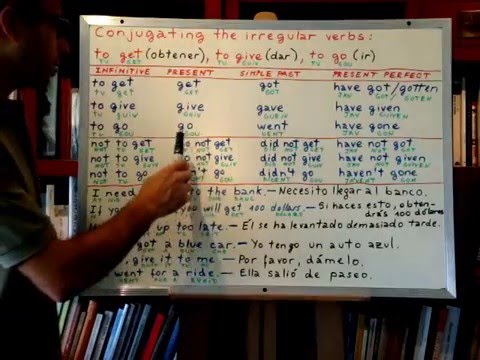 Conjugating the irregular verbs:
to get (obtener), to give (dar), to go (ir)
TU GET TU GUIV TU GOU
INFINITIVE PRESENT SIMPLE PAST PRESENT PERFECT
to get get got have got/gotten
TU GET GET GOT JAV GOT GOTEN
to give give gave have given
TU GUIV GUIV GUEIV JAV GUIVEN
to go go went have gone
TU GOU GOU WENT JAV GON
not to get not get did not get have not got
not to give not give did not give have not given
not to go n't go didn't go haven't gone
I need to the bank. — Necesito llegar al banco.
If you you will get 100 dollars. — Si haces esto, obten-
drás 100 dólares
up too late. — El se ha levantado demasiado tarde.
got a blue car. — Yo tengo un auto azul.
, give it to me. — Por favor, dámelo.
went for a ride. — Ella salió de paseo.